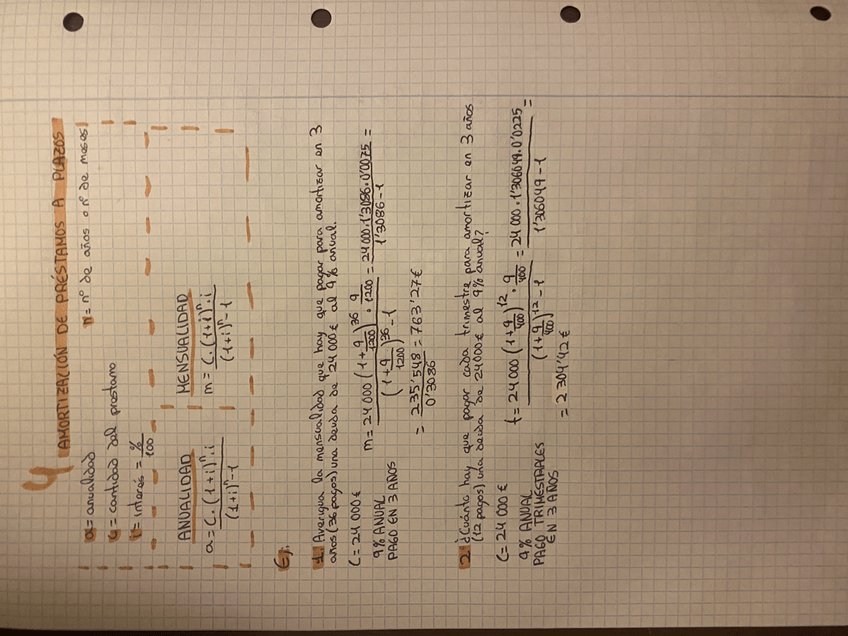 4 AMORTIZACIÓN DE PRÉSTAMOS A PLAZOS
a = anualidad n = nº de años o nº de meses
C = cantidad del préstamo
i = interés = %/100
ANUALIDAD MENSUALIDAD
a = C·(1+i)ⁿ·i / (1+i)ⁿ-1 m = C·(1+i)ⁿ·i / (1+i)ⁿ-1
Ej.
1. Averigua la mensualidad que hay que pagar para amortizar en 3
años (36 pagos) una deuda de 24 000 € al 9% anual.
C = 24 000 €
9% ANUAL
PAGO EN 3 AÑOS
m = 24 000 (1 + 9/1200)^36 · 9/1200 / (1 + 9/1200)^36 - 1 = 24 000 · 1'3086 · 0'0075 / 1'3086 - 1 =
= 235'548 / 0'3086 = 763'27 €
2. ¿Cuánto hay que pagar cada trimestre para amortizar en 3 años
(12 pagos) una deuda de 24000 € al 9% anual?
C = 24 000 €
9% ANUAL
PAGO TRIMESTRALES
EN 3 AÑOS
t = 24 000 (1 + 9/400)^12 · 9/400 / (1 + 9/400)^12 - 1 = 24 000 · 1'306049 · 0'0225 / 1'306049 - 1 =
= 2 304'42 €